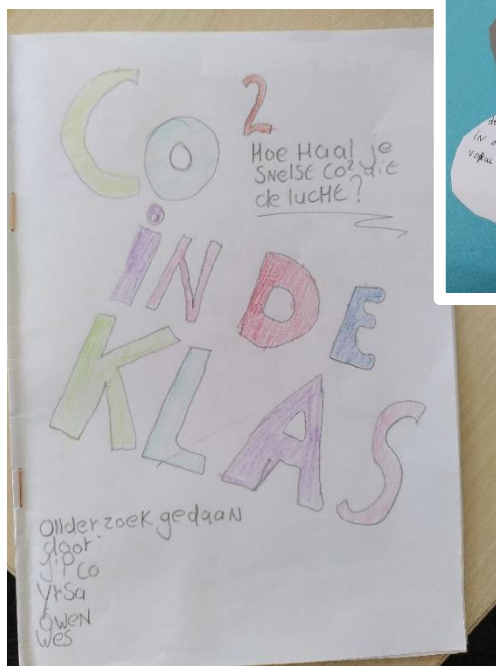 CO²
Hoe Haal je
SNelSt CO² uit
de lucHt?
iN DE
KLAS
oNderzoek gedaaN
door:
Jip Co
YrSa
OweN
Wes
iN